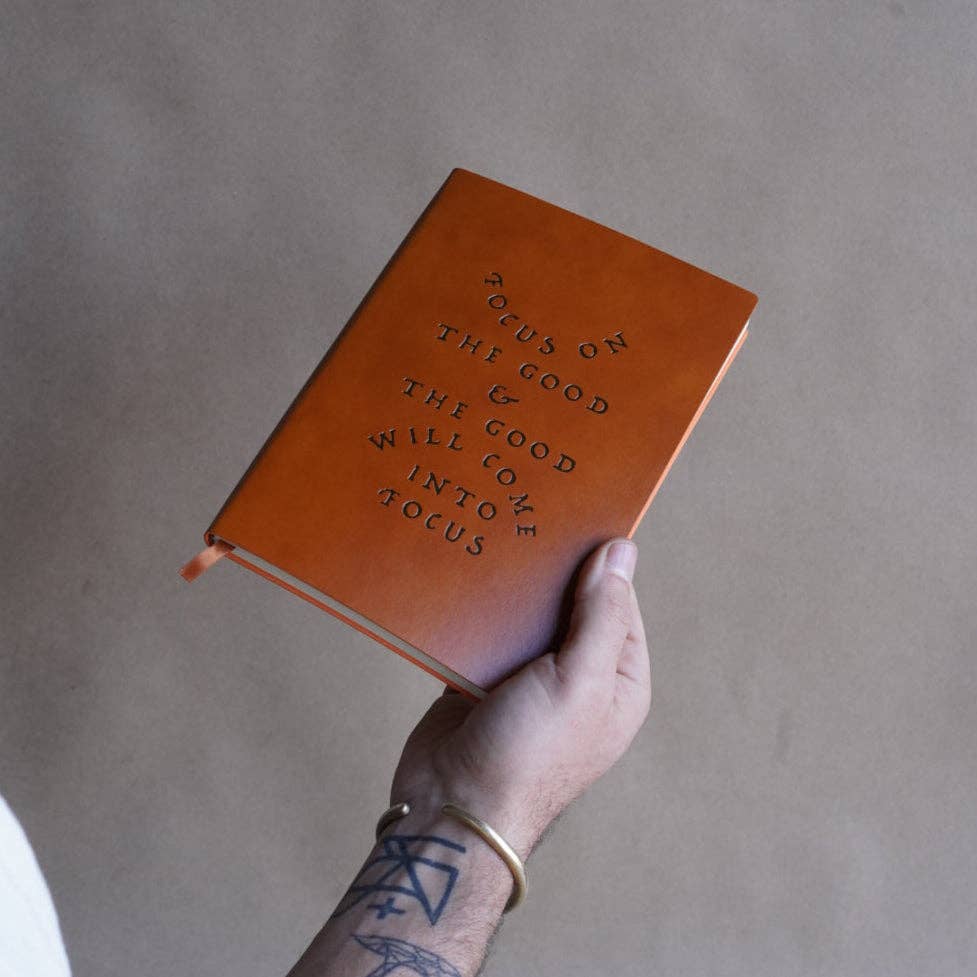 FOCUS ON
THE GOOD
&
THE GOOD
WILL COME
INTO
FOCUS